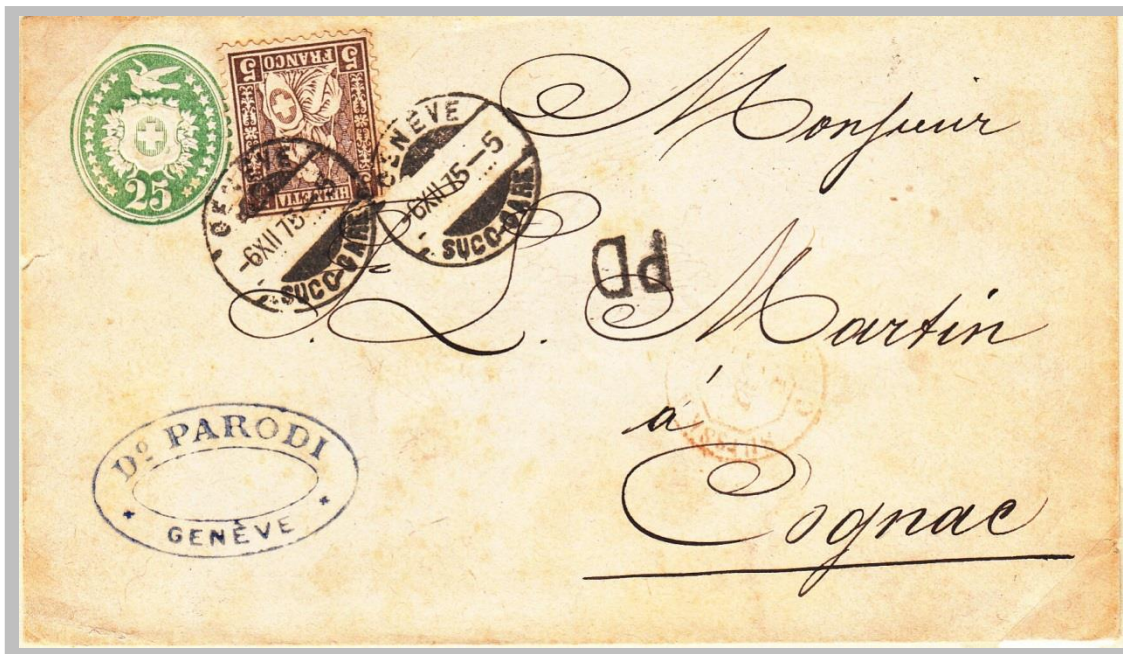 25
5 FRANCO 5
HELVETIA
GENÈVE
-6XII75-5
SUCC-GARE
GENÈVE
-6XII75-5
SUCC-GARE
PD
Monsieur
L. Martin
à
Cognac
Dº PARODI
GENÈVE